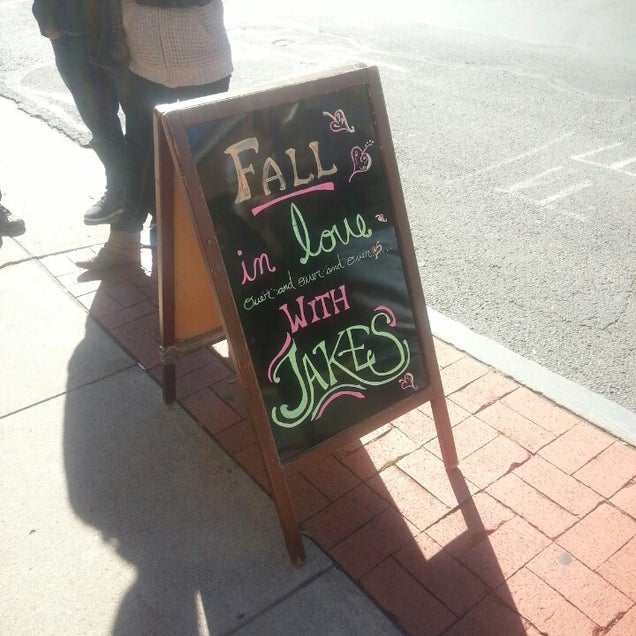 FALL
in love
over and over and over...
WITH
JAKES